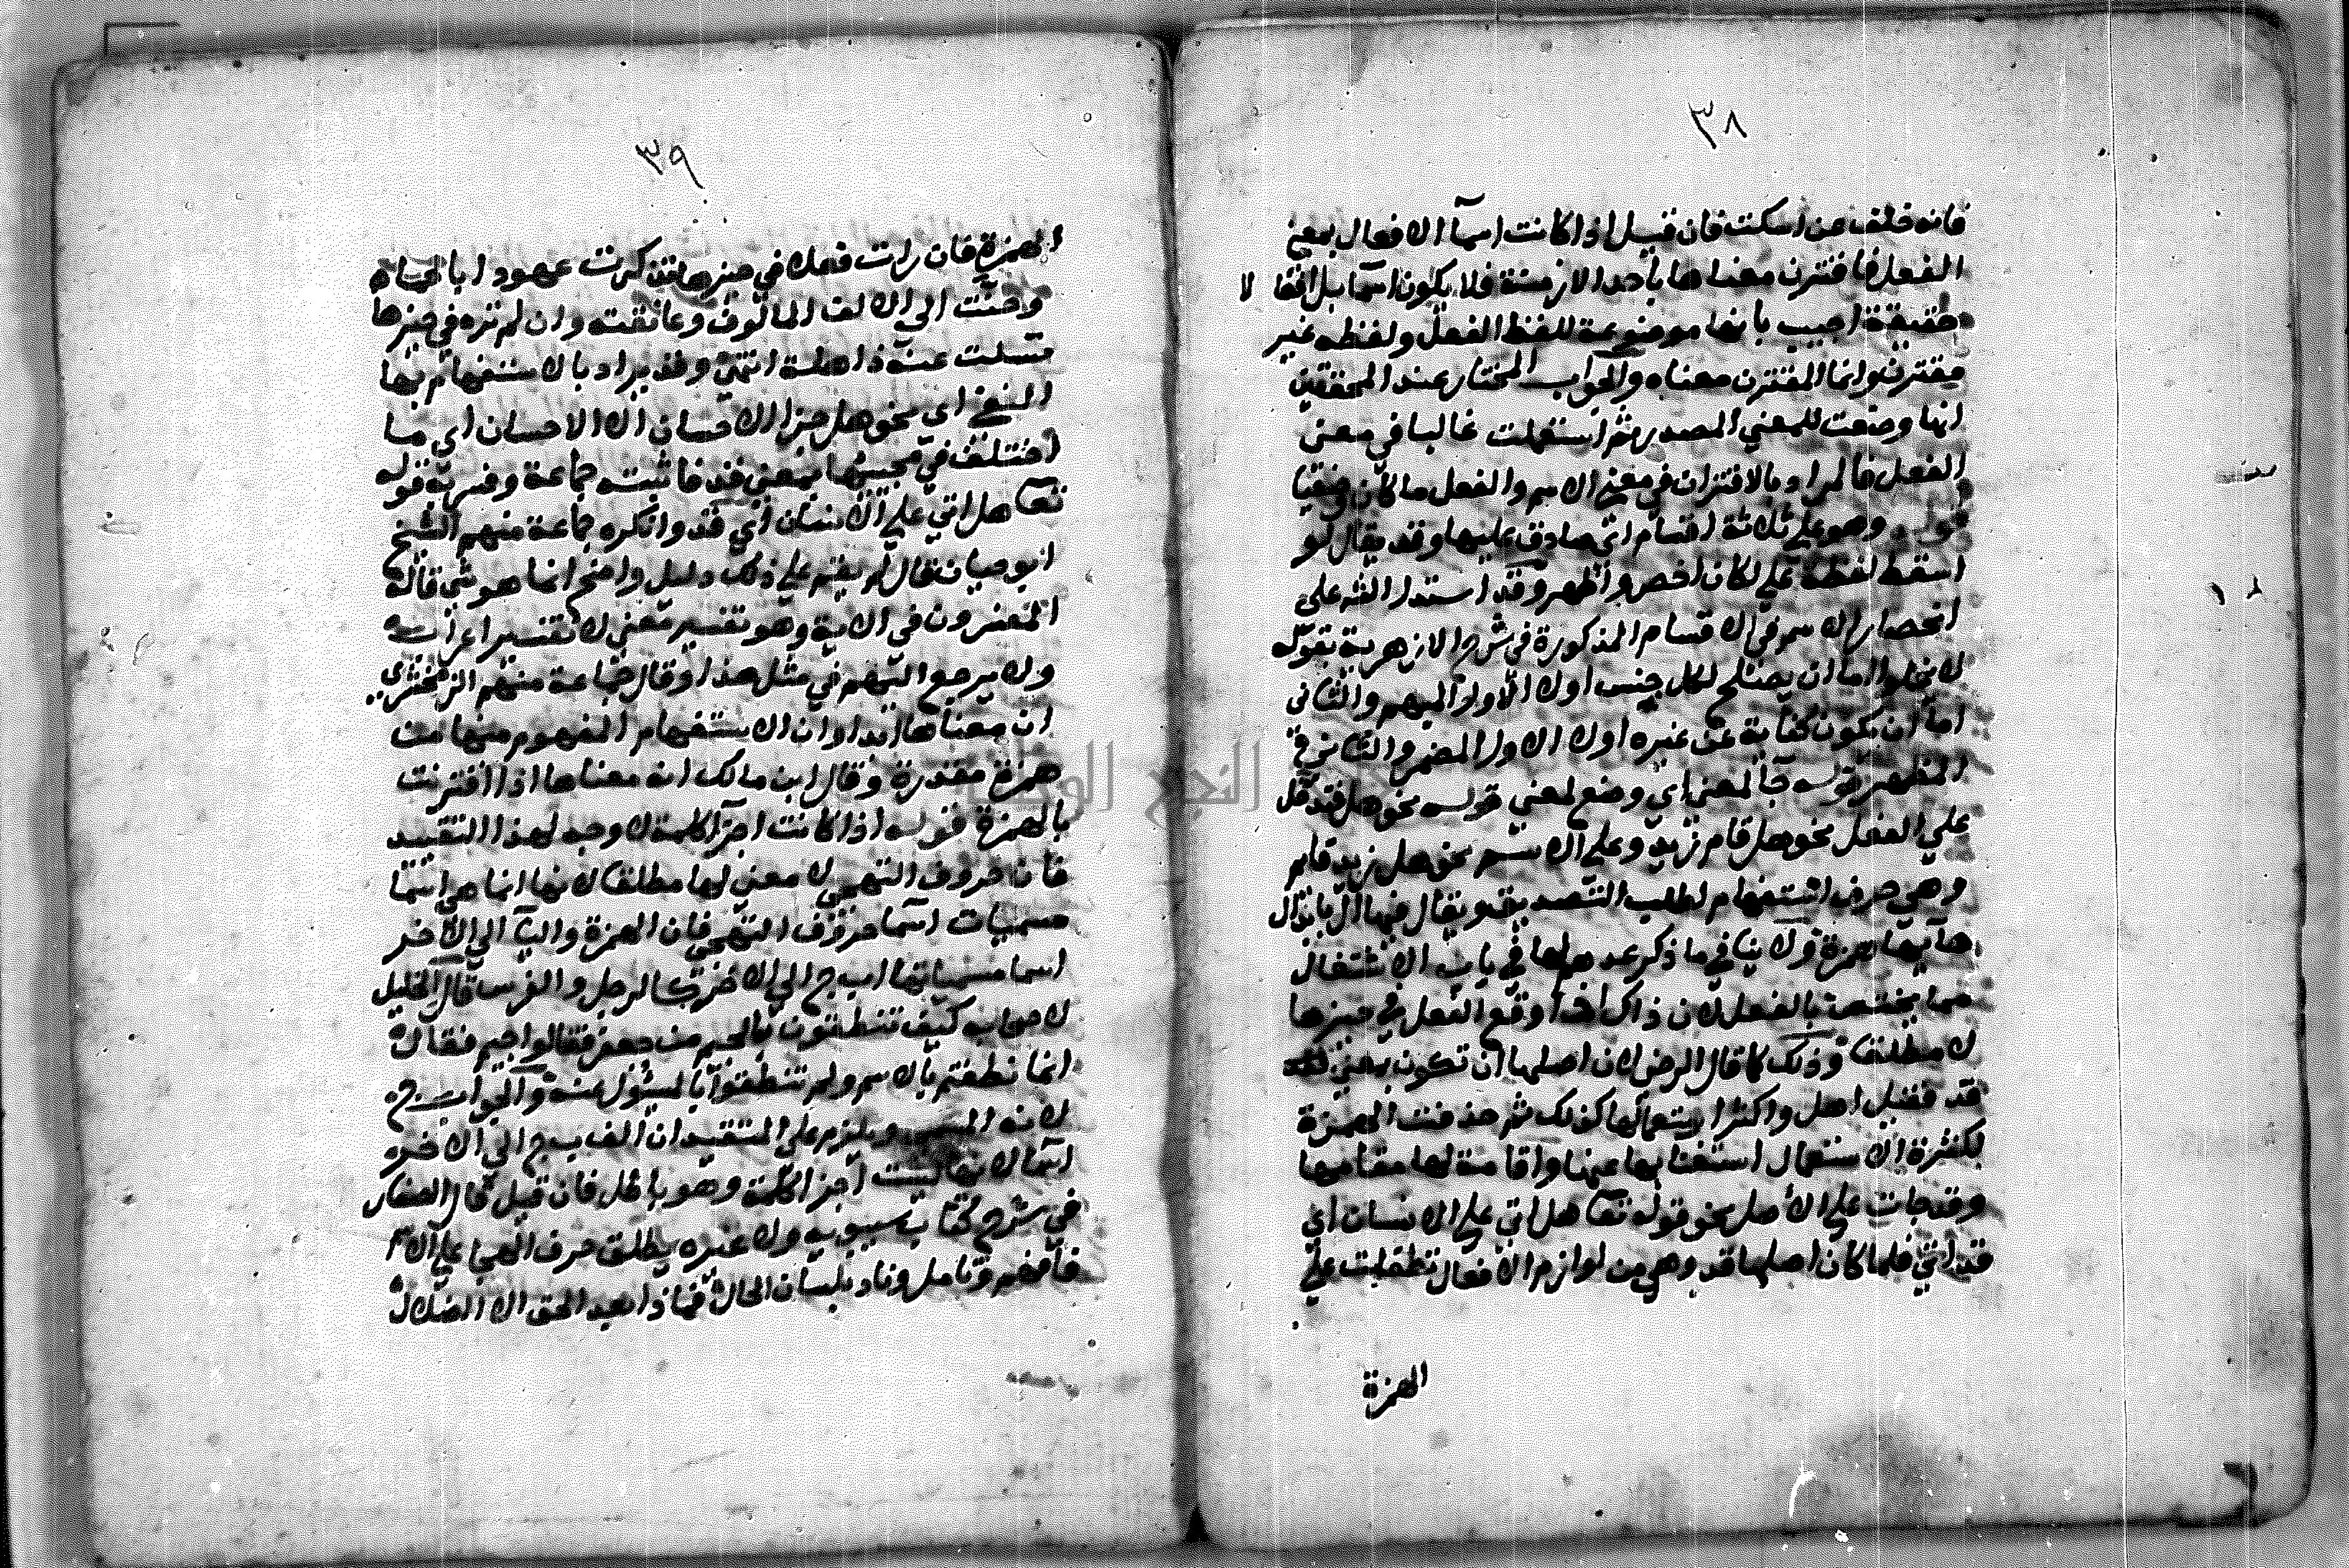 ٣٨
فانه خلف عن اسكت فان قيل اذا كانت اسما الافعال بمعنى
الفعل فاقترن معناها باحد الازمنة فلا يكون اسما بل افعالا
حقيقة اجيب بانها موضوعة للفظ الفعل ولفظه غير
مقترن وانما المقترن معناه والجواب المختار عند المحققين
انها وضعت للمعنى المصدري ثم استعملت غالبا في معنى
الفعل فالمراد بالاقتران في معنى الاسم والفعل ما كان وضعيا
قوله وهو على ثلاثة اقسام اي صادق عليها وقد يقال لو
اسقط لفظة على لكان اخصر واظهر وقد استدل الشه على
انحصار الاسم في الاقسام المذكورة في شرح الازهرية بقوله
لا يخلوا اما ان يصلح لكل جنس اولا الاول المبهم والثاني
اما ان يكون كناية عن غيره اولا الاول المضمر والثاني
المظهر قوله جا لمعنى اي وضع لمعنى قوله نحو هل فتدخل
على الفعل نحو هل قام زيد وعلى الاسم نحو هل زيد قايم
وهي حرف استفهام لطلب التصديق ويقال فيها ال بابدال
هايها همزة ولا ينافي ما ذكر عدهم لها في باب الاشتغال
مما يختص بالفعل لان ذاك اذا وقع الفعل في حيزها
لا مطلقا وذلك كما قال الرضي لان اصلها ان تكون بمعنى
قد فقيل اهل واكثر استعمالها كذلك ثم حذفت الهمزة
لكثرة الاستعمال استغنا بها عنها واقامة لها مقامها
وقد جات على الاصل نحو قوله تعا هل اتى على الانسان اي
قد اتى فلما كان اصلها قد وهي من لوازم الافعال تطفلت على
الهمزة
٣٩
الهمزة فان رات فعلا في حيزها تذكرت عهودا بالحماه
وحنت الى الالف المالوف وعانقته وان لم تره في حيزها
تسلت عنه ذاهلة انتهى وقد يراد بالاستفهام بها
النفي اي نحو هل جزا الاحسان الا الاحسان اي ما
اختلف في مجيئها بمعنى قد فاثبته جماعة وفسر به قوله
تعا هل اتى على الانسان اي قد وانكره جماعة منهم الشيخ
ابو حيان فقال لم يقم على ذلك دليل واضح انما هو شي قاله
المفسرون في الاية وهو تفسير معنى لا تفسير اعراب
ولا يرجع اليهم في مثل هذا وقال جماعة منهم الزمخشري
ان معناها ابدا وان الاستفهام المفهوم منها من
همزة مقدرة وقال ابن مالك انه معناها اذا اقترنت
بالهمزة قوله اذا كانت اجزا كلمة لا وجه لهذا التقييد
فان حروف التهجي لا معنى لها مطلقا لانها انما هي اسما
مسميات اسما حروف التهجي فان الهمزة والبا الى الاخر
اسما مسمياتها اب ج الى الاخر كالرجل والفرس قال الخليل
لاصحابه كيف تنطقون بالجيم من جعفر فقالوا جيم فقال
انما نطقتم بالاسم ولم تنطقوا بالمسؤل عنه والجواب ج
لانه المسمى ويلزم على التقييد ان الف ب ج الى الاخر
اسما لانها ليست اجزا كلمة وهو باطل فان قيل قال الصفار
في شرح كتاب سيبويه ولا غيره يطلق حرف الهجا على الاسم
فافهم وتامل وناد بلسان الحال فماذا بعد الحق الا الضلال